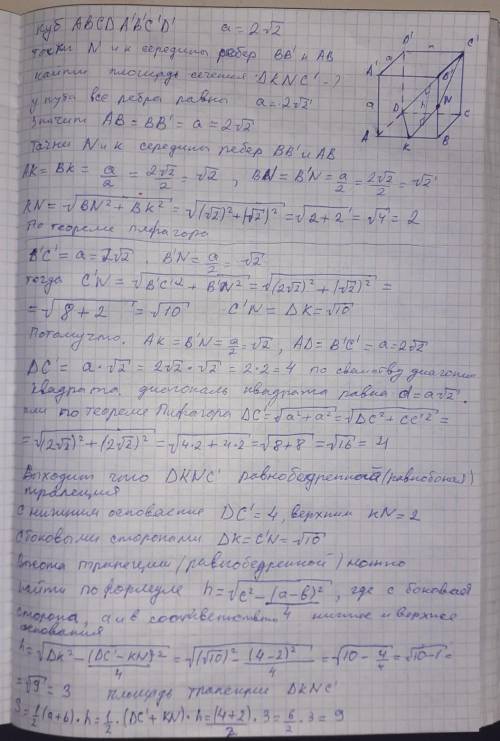 куб ABCD A'B'C'D'    a = 2√2
точки N и к середины ребер BB' и AB
найти площадь сечения DKNC' - ?
у куба все ребра равны a = 2√2
значит AB = BB' = a = 2√2
Точки N и к середины ребер BB' и AB
AK = BK = a/2 = 2√2/2 = √2 , BN = B'N = a/2 = 2√2/2 = √2
KN = √(BN² + BK²) = √((√2)² + (√2)²) = √(2+2) = √4 = 2
По теореме Пифагора
B'C' = a = 2√2 . B'N = a/2 = √2
тогда C'N = √(B'C'² + B'N²) = √((2√2)² + (√2)²) =
= √(8+2) = √10    C'N = DK = √10
Потому что. AK = B'N = a/2 = √2 , AD = B'C' = a = 2√2
DC' = a·√2 = 2√2·√2 = 2·2 = 4 по свойству диагонали
квадрата. диагональ квадрата равна d = a√2.
или по теореме Пифагора DC' = √(a²+a²) = √(DC² + CC'²) =
= √((2√2)² + (2√2)²) = √(4·2+4·2) = √(8+8) = √16 = 4
Выходит что DKNC' равнобедренной (равнобокая)
трапеция
с нижним основание DC' = 4, верхним KN = 2
с боковыми сторонами DK = C'N = √10
Высота трапеции (равнобедренной) можно
найти по формуле h = √(c² - (a-b)²/4), где c боковая
сторона, а и в соответственно нижние и верхнее
основания
h = √(DK² - (DC'-KN)²/4) = √((√10)² - (4-2)²/4) = √(10 - 4/4) = √(10-1) =
= √9 = 3    площадь трапеции DKNC'
S = 1/2 (a+b)·h = 1/2·(DC'+KN)·h = (4+2)/2·3 = 6/2·3 = 9
D'
a
C'
A'
B'
a
D
h
N
C
A
K
B